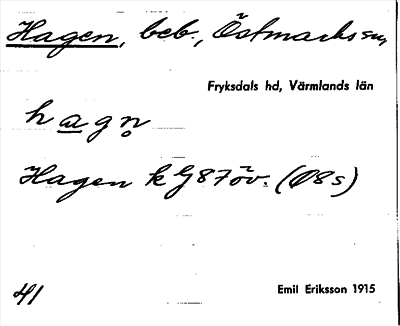 Hagen, beb., Östmarks sn,
Fryksdals hd, Värmlands län
h a g n̥
Hagen k G87öv. (Ø8s)
41
Emil Eriksson 1915